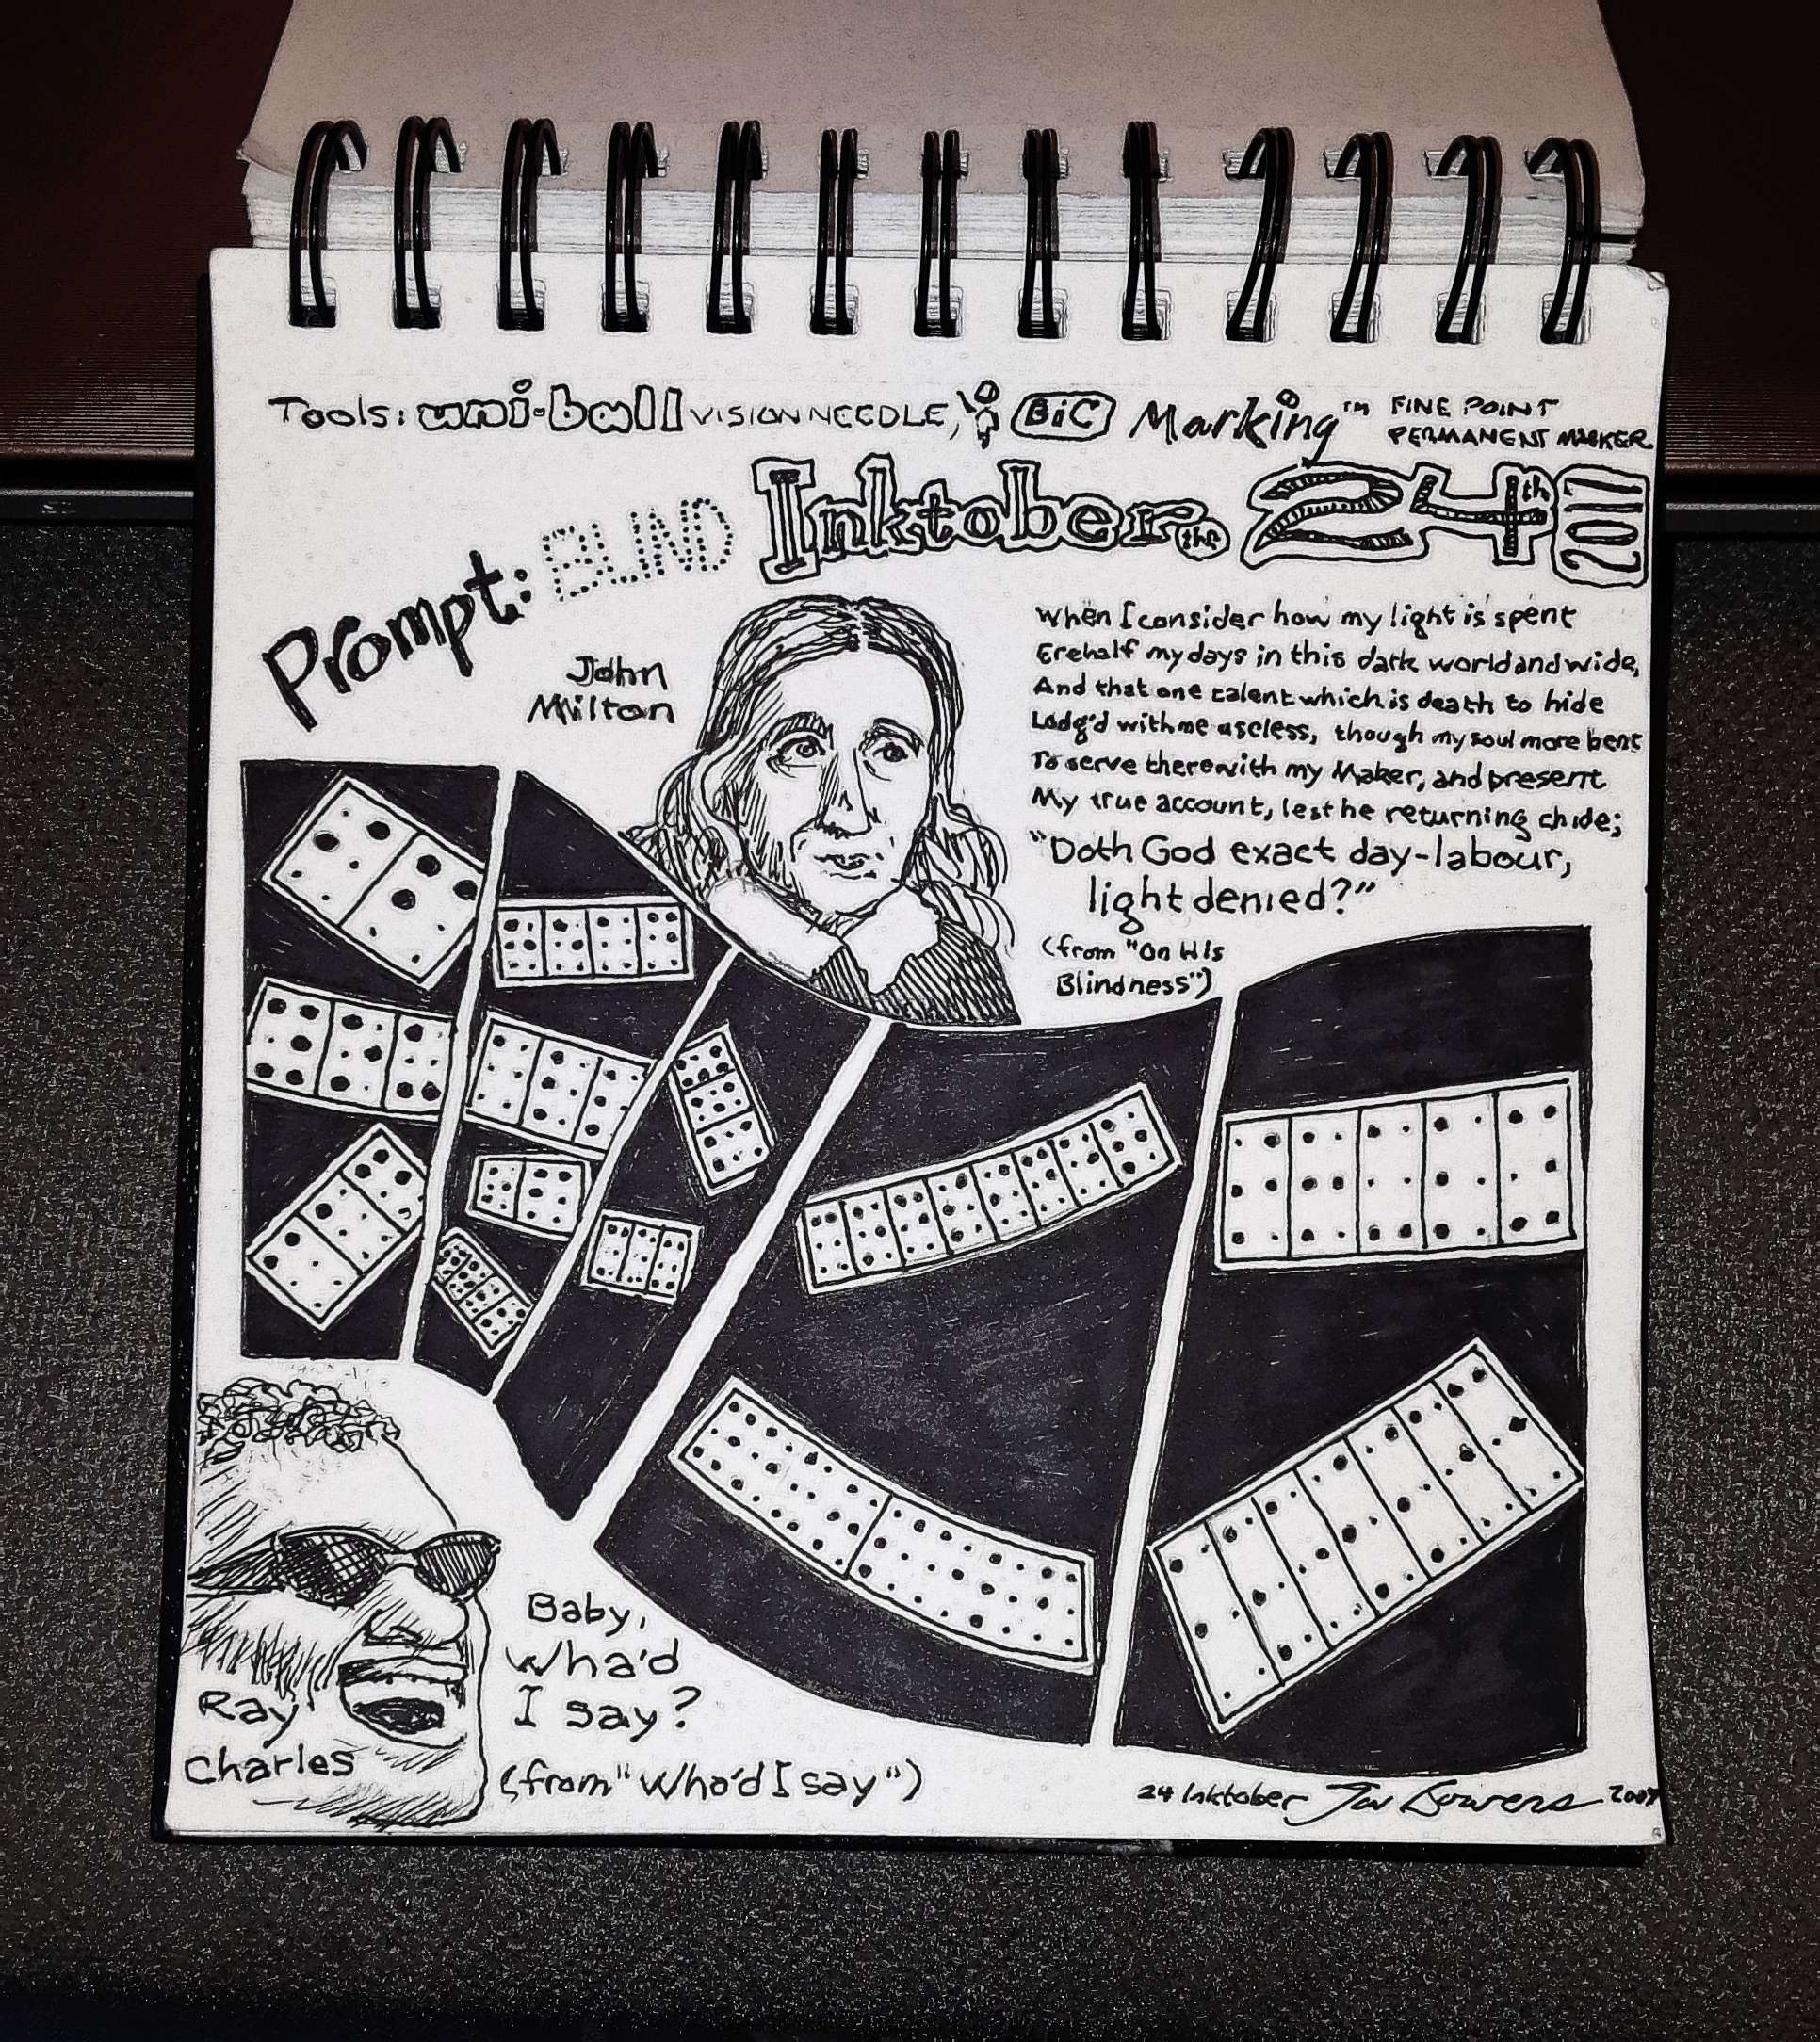 Tools: uni-ball VISION NEEDLE, BiC Marking™ FINE POINT PERMANENT MARKER
Prompt: BLIND
Inktober the 24th 2017
John
Milton
When I consider how my light is spent
Ere half my days in this dark world and wide,
And that one talent which is death to hide
Lodg'd with me useless, though my soul more bent
To serve therewith my Maker, and present
My true account, lest he returning chide;
"Doth God exact day-labour,
light denied?"
(from "On His
Blindness")
Ray
Charles
Baby,
Wha'd
I say?
(from "Wha'd I say")
24 Inktober Bowers